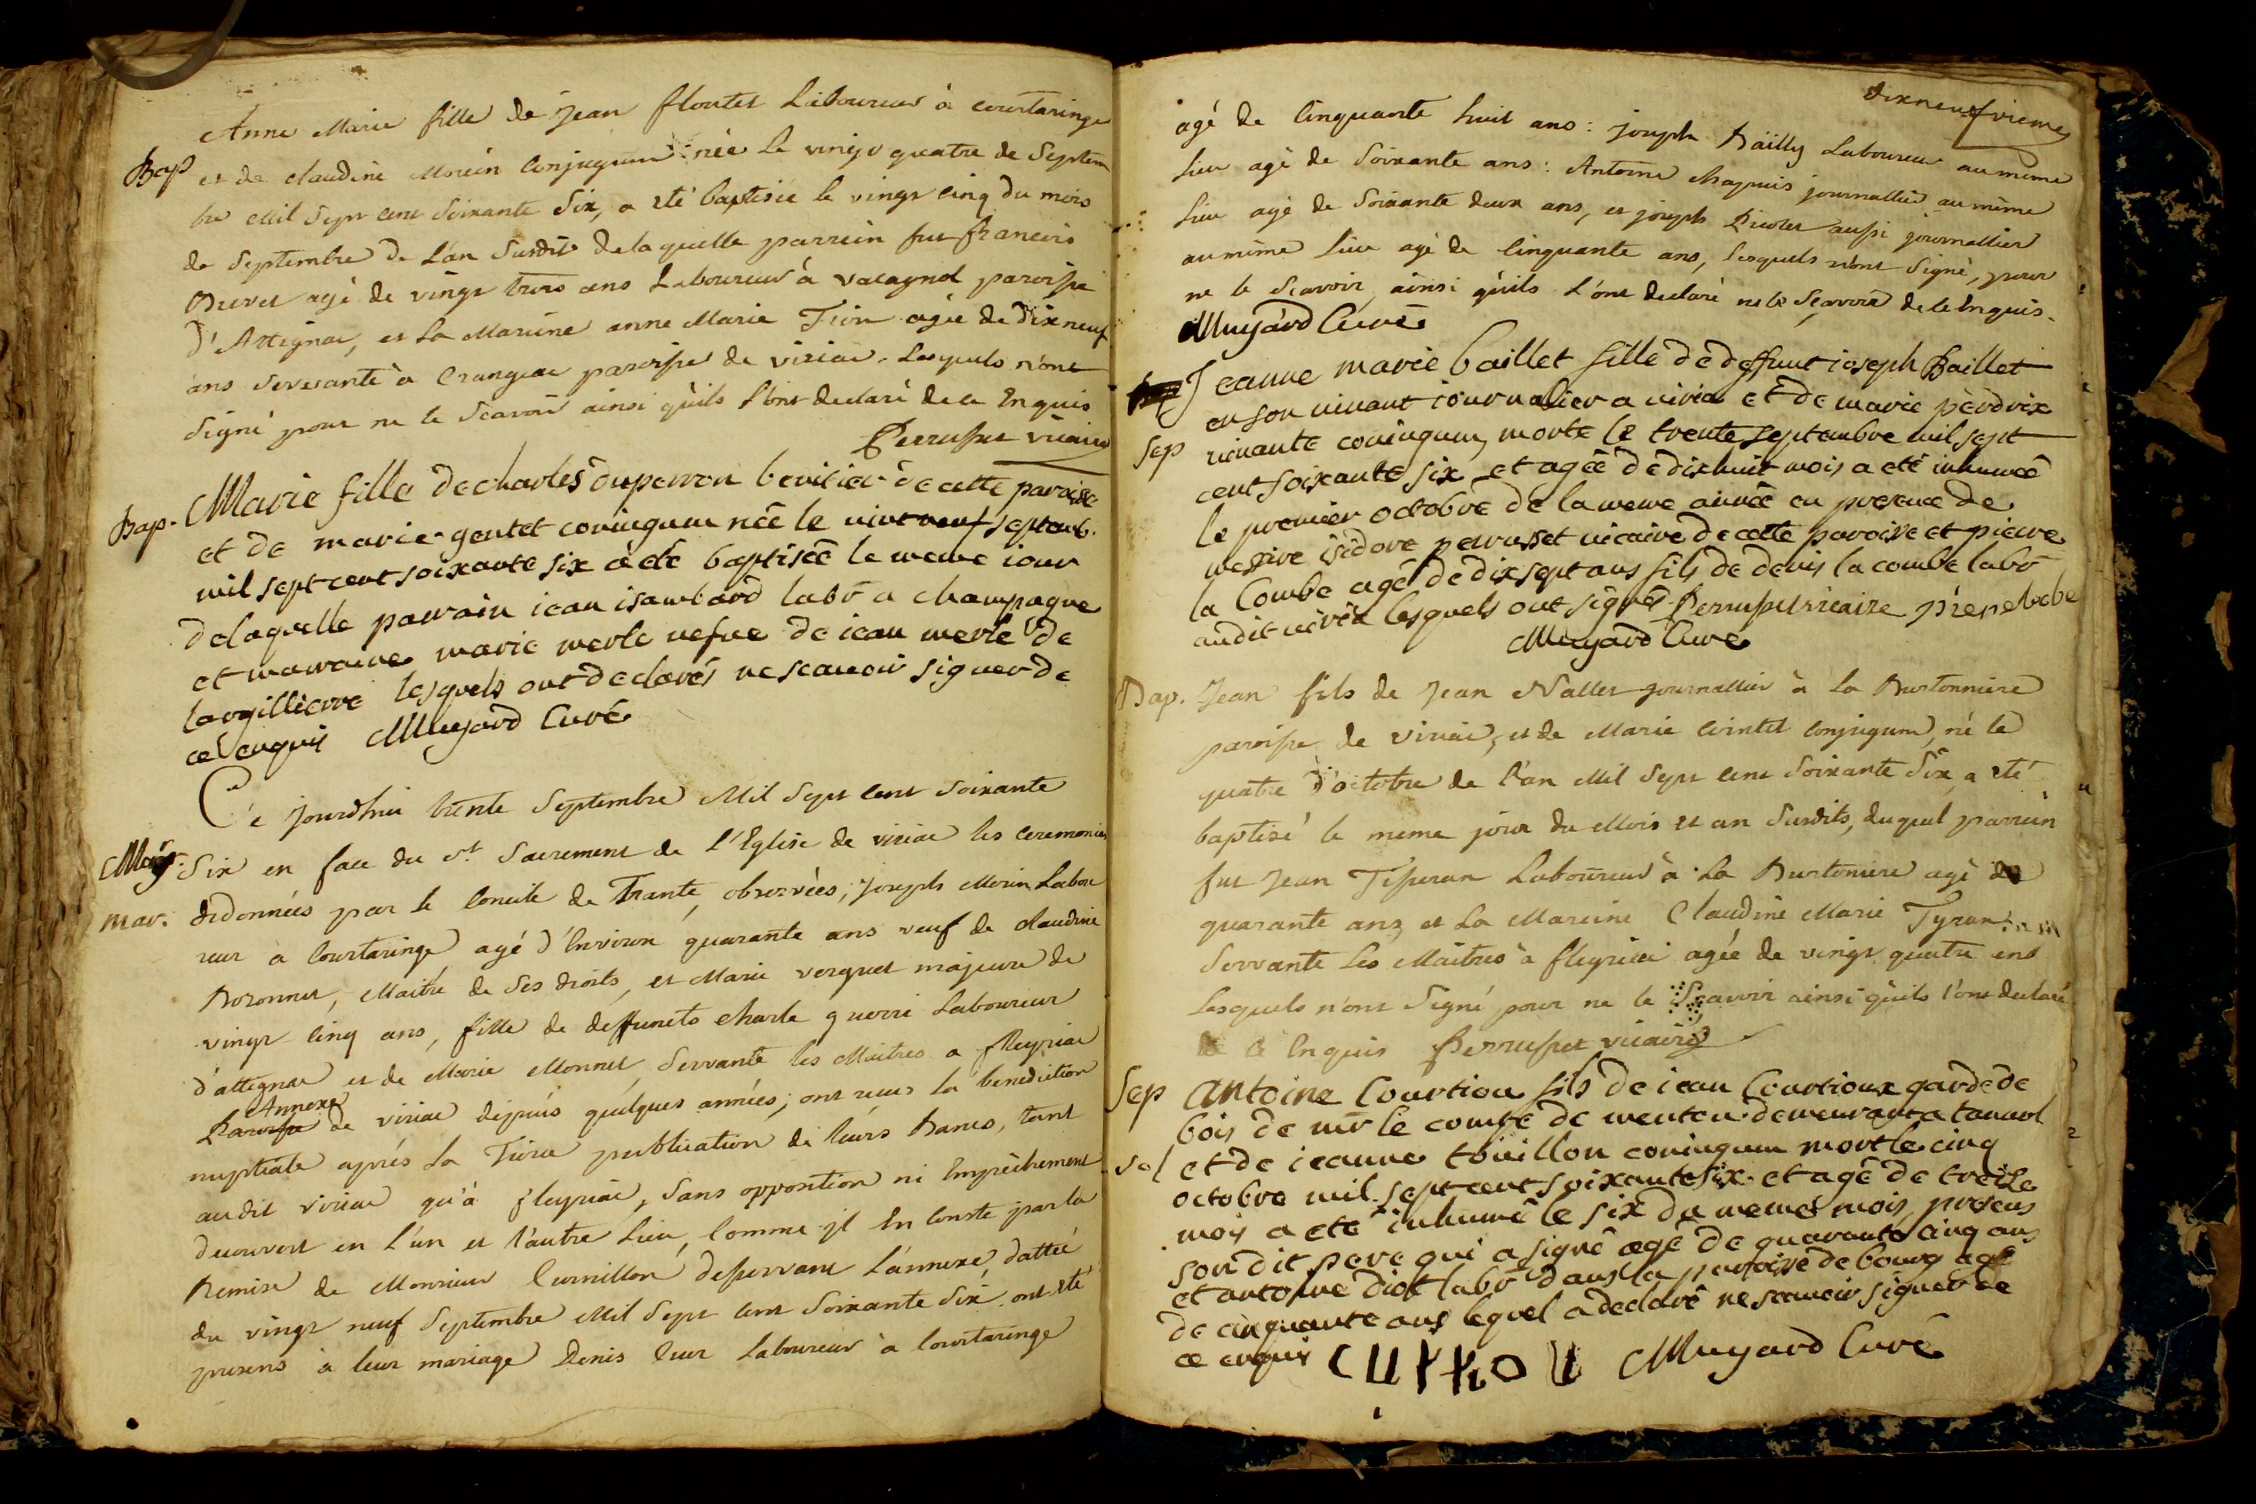 Anne Marie fille de Jean floutet Laboureur à courtaringe
Bap et de claudine Morin Conjugum née le vingt quatre de Septem
bre Mil Sept cent Soixante Six, a eté baptisée le vingt cinq du mois
de Septembre de L'an Susdit de laquelle parrein fut francois
Buvet agé de vingt trois ans Laboureur à vacagnol paroisse
d'Attignac, et La Mareine anne Marie Tion agée de dixneuf
ans Servante à Crangeac paroisse de viriac. Lesquels n'ont
Signé pour ne le Scavoir ainsi qu'ils l'ont declaré de ce Enquis
Perrusset vicaire
Bap. Marie fille de charles duperron benitier de cette paroisse
et de marie gentet coniugum née le vint neuf septemb.
mil sept cent soixante six a eté baptisée le meme iour
de laquelle parrain iean isambard labr a champagne
et marraine marie merle vefue de iean merle de
largillierre lesquels ont declarés ne scauoir signer de
ce enquis Mugard Curé
Ce Jourdhui trente Septembre Mil Sept Cent Soixante
Marg. Six en face du st. Sacrement de l'Eglise de viriac les ceremonies
mar. ordonnées par le Concile de Trante, observées, Joseph Morin Labou
reur à Courtaringe agé d'Environ quarante ans veuf de claudine
Boronnet, Maitre de Ses droits, et Marie verguet majeure de
vingt Cinq ans, fille de deffuncts charle guerri Laboureur
d'attignac et de Marie Monnet Servante les Maitres a fleyriac
Annexe
Paroisse de viriac depuis quelques années; ont recu la benediction
nuptiale aprés La Tierce publication de leurs Bancs, tant
audit viriac qu'à fleyriac, Sans opposition ni Empêchement
decouvert en L'un et l'autre Lieu, Comme il En Conste par la
Remise de Monsieur Curnillon desservant L'annexe, dattée
du vingt neuf Septembre Mil Sept Cent Soixante Six. ont eté
presens à leur mariage Denis Cuer Laboureur à Courtaringe
dixneufvieme
agé de Cinquante huit ans: joseph Baïlly Laboureur au même
lieu agé de Soixante ans: Antoine chapuis journallier au même
Lieu agé de Soixante deux ans, et joseph Picolet aussi journallier
au même Lieu agé de Cinquante ans, lesquels n'ont Signé, pour
ne le Scavoir, ainsi qu'ils L'ont declaré ne le Scavoir de ce Enquis.
Mugard Curé
Jeanne marie baillet fille de deffunt ioseph Baillet
en son uiuant iournalier a uiria et de marie perdrix
Sep uiuante coniugum, morte le trente septembre mil sept
cent soixante six et agée de dixhuit mois a eté inhumée
le premier octobre de la meme année en presence de
messire isidore perrusset uicaire de cette paroisse et pierre
la Combe agé de dixsept ans fils de denis la combe labr
audit uiria lesquels ont signés. Perrusset vicaire
Mugard Curé
Bap. Jean fils de Jean Nallet journallier à La Burtonniere
paroisse de viriac, et de Marie Cointet Conjugum, né le
quatre d'octobre de l'an Mil Sept Cent Soixante Six, a eté
baptisé le meme jour du Mois et an Susdits, duquel parrein
fut Jean Tisseran Laboureur à La Burtoniere agé de
quarante ans, et La Mareine Claudine Marie Tyran
Servante Les Maitres à fleyriac agée de vingt quatre ans
Lesquels n'ont Signé pour ne le Scavoir ainsi qu'ils l'ont declaré
de ce Enquis Perrusset vicaire
Sep antoine Courtiou fils de iean Courtioux garde de
bois de mr le comte de menton demeurant a tanuol
sol et de ieanne touillon coniugum mort le cinq
octobre mil sept cent soixante six et agé de treize
mois a eté inhumé le six du meme mois, presens
son dit pere qui a signé agé de quarante cinq ans
et antoine diot labr dans la paroisse de bourg agé
de cinquante ans lequel a declaré ne scauoir signer de
ce enquis Mugard Curé